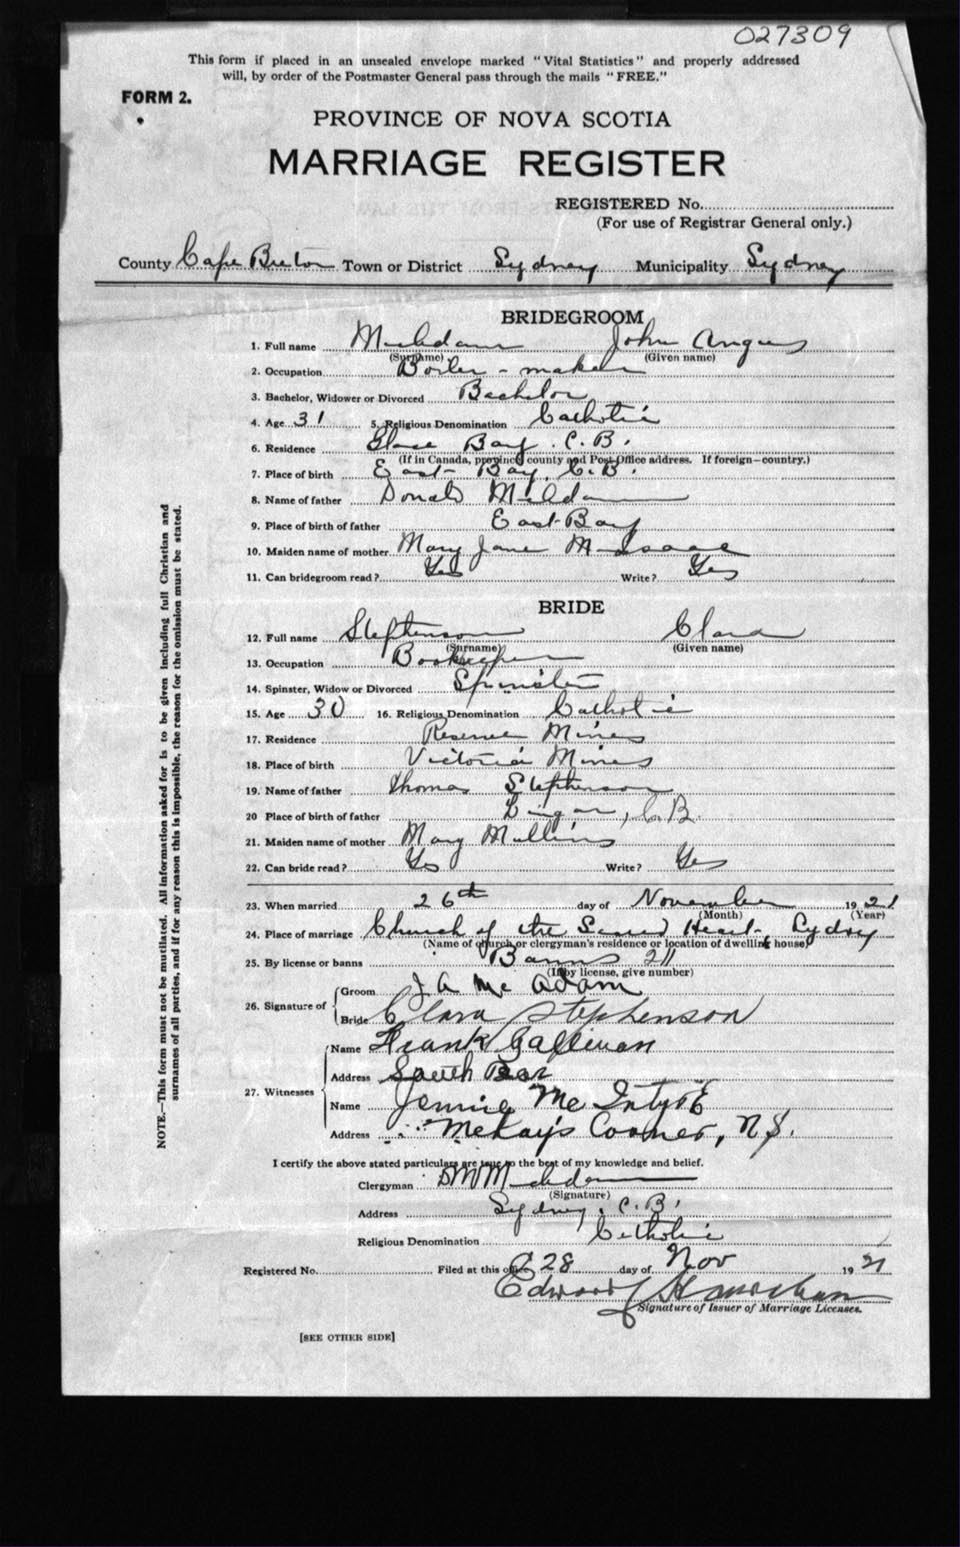 027309
This form if placed in an unsealed envelope marked "Vital Statistics" and properly addressed
will, by order of the Postmaster General pass through the mails "FREE."
FORM 2.
PROVINCE OF NOVA SCOTIA
MARRIAGE REGISTER
REGISTERED No.
(For use of Registrar General only.)
County Cape Breton Town or District Sydney Municipality Sydney
BRIDEGROOM
1. Full name McAdam John Angus
(Surname) (Given name)
2. Occupation Boiler - maker
3. Bachelor, Widower or Divorced Bachelor
4. Age 31 5. Religious Denomination Catholic
6. Residence Glace Bay. C.B.
(If in Canada, province county and Post Office address. If foreign—country.)
7. Place of birth East Bay, C.B.
8. Name of father Donald McAdam
9. Place of birth of father East Bay
10. Maiden name of mother Mary Jane McIsaac
11. Can bridegroom read? Yes Write? Yes
BRIDE
12. Full name Stephenson Clara
(Surname) (Given name)
13. Occupation Bookkeeper
14. Spinster, Widow or Divorced Spinster
15. Age 30 16. Religious Denomination Catholic
17. Residence Reserve Mines
18. Place of birth Victoria Mines
19. Name of father Thomas Stephenson
20 Place of birth of father Lingan, C.B.
21. Maiden name of mother Mary Mullins
22. Can bride read? Yes Write? Yes
23. When married 26th day of November 1921
(Month) (Year)
24. Place of marriage Church of the Sacred Heart, Sydney
(Name of church or clergyman's residence or location of dwelling house)
25. By license or banns Banns 211
(If by license, give number)
26. Signature of Groom J A McAdam
Bride Clara Stephenson
27. Witnesses Name Frank Gallivan
Address South Bar
Name Jennie McIntyre
Address McKay's Corner, N.S.
I certify the above stated particulars are true to the best of my knowledge and belief.
Clergyman McAdam
(Signature)
Address Sydney, C.B.
Religious Denomination Catholic
Registered No. Filed at this office 28 day of Nov 1921
Edward
Signature of Issuer of Marriage Licenses.
[SEE OTHER SIDE]
NOTE.—This form must not be mutilated. All information asked for is to be given including full Christian and
surnames of all parties, and if for any reason this is impossible, the reason for the omission must be stated.